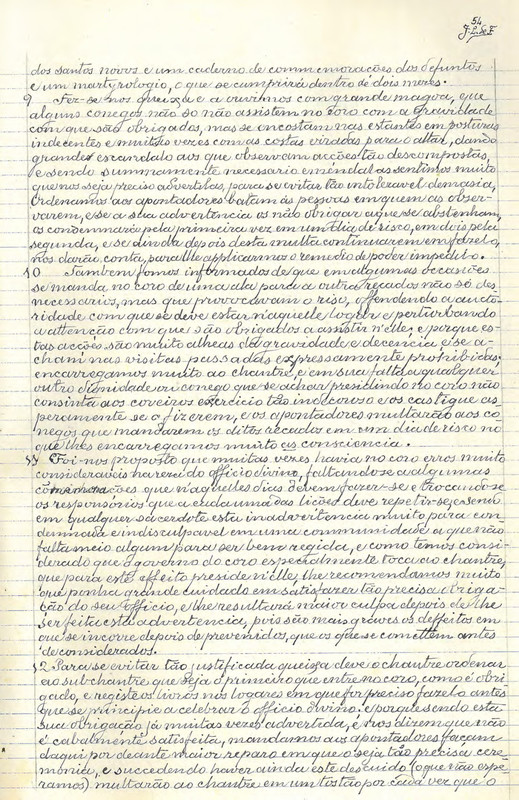 54
J. L. de F.
dos santos novos e um caderno de commemorações dos defuntos
e um martyrologio, o que se cumprirá dentro de dois meses.
9 Fez-se-nos queixa e a ouvimos com grande magoa, que
alguns conegos não só não assistem no coro com a gravidade
com que são obrigados, mas se encostam nas estantes em posturas
indecentes e muitas vezes com as costas viradas para o altar, dando
grande escandalo aos que observam acções tão descompostas,
e sendo summamente necessario emendal-as sentimos muito
que nos seja preciso advertil-as, para se evitar tão intoleravel demasia,
ordenamos aos apontadores batam ás pessoas em quem as obser-
varem, e se a sua advertencia os não obrigar a que se abstenham,
os condemnará pela primeira vez em um dia de risco, em dois pela
segunda, e se ainda depois desta multa continuarem em fazel-o,
nos darão conta, para lhe applicarmos o remedio de poder impedil-o.
10 Tambem fomos informados de que em algumas occasiões
se manda no coro de uma ala para a outra recados não só des-
necessarios, mas que provocavam o riso, offendendo a aucto-
ridade com que se deve estar n'aquelle logar e perturbando
a attenção com que são obrigados a assistir n'elle, e porque es-
tas acções são muito alheas da gravidade e decencia e se a-
cham nas visitas passadas expressamente prohibidas,
encarregamos muito ao chantre, e em sua falta a qualquer
outro dignidade ou conego que se achar presidindo no coro não
consinta aos coreiros exercicio tão indecoroso e os castigue as-
peramente se o fizerem, e os apontadores multarão aos co-
negos que mandarem os ditos recados em um dia de risco no
que lhes encarregamos muito as consciencia.
11 Foi-nos proposto que muitas vezes havia no coro erros muito
consideraveis na reza do officio divino, faltando-se a algumas
commemorações que n'aquelles dias devem fazer-se e trocando-se
os responsórios que a cada uma das lições deve repetir-se, e sendo
em qualquer sacerdote esta inadvertencia muito para con-
demnada e indisculpavel em uma communidade a que não
falta meio algum para ser bem regida, e como temos consi-
derado que o governo do coro especialmente toca ao chantre,
que para este effeito preside n'elle, lhe recomendamos muito
que ponha grande cuidado em satisfazer tão precisa obriga-
ção do seu officio, e lhe resultará maior culpa depois de lhe
ser feita esta advertencia, pois são mais graves os deffeitos em
que se incorre depois de prevenidos, que os que se comettem antes
de considerados.
12 Para se evitar tão justificada queixa deve o chantre ordenar
ao sub-chantre que seja o primeiro que entre no coro, como é obri-
gado, e registe os livros nos logares em que for preciso fazel-o antes
que se principie a celebrar o officio divino: e porque sendo esta
sua obrigação já muitas vezes advertida, e nos dizem que não
é cabalmente satisfeita, mandamos aos apontadores façam
daqui por deante maior reparo em que o seja tão precisa cere-
monia, e succedendo haver ainda este descuido (o que não espe-
ramos) multarão ao chantre em um tostão por cada vez que o